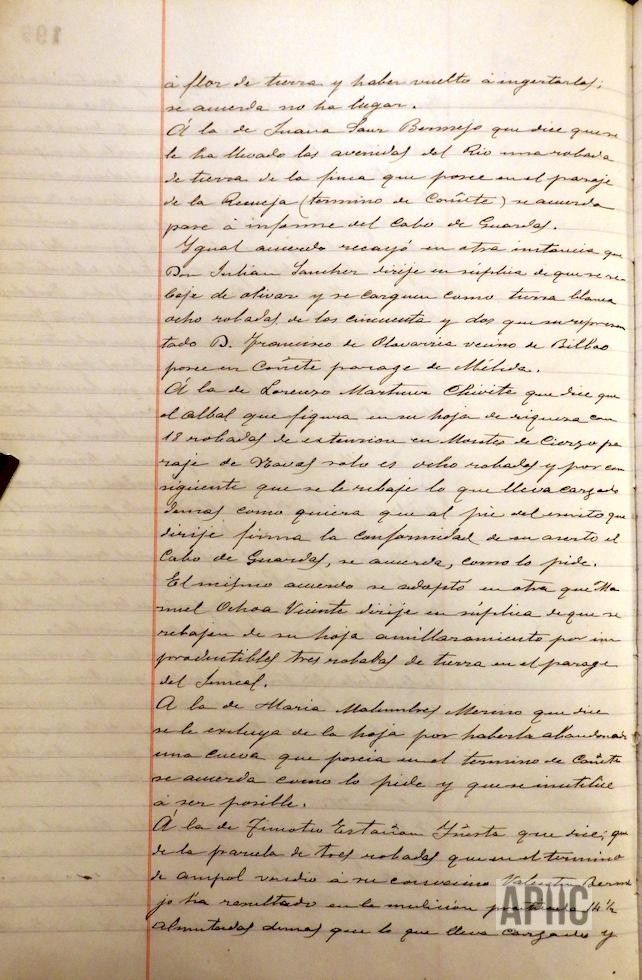 á flor de tierra y haber vuelto á ingertarlas;
se acuerda no ha lugar.
Á la de Juana Sanz Bermejo que dice que se
le ha llevado las avenidas del Rio una robada
de tierra de la finca que posee en el paraje
de la Recueja (termino de Cañete) se acuerda
pase á informe del Cabo de Guardas.
Ygual acuerdo recayó en otra instancia que
Don Julian Sanchez dirije en súplica de que se re
baje de olivar y se carguen como tierra blanca
ocho robadas de las cincuenta y dos que su represen
tado D. Francisco de Olavarria vecino de Bilbao
posee en Cañete parage de Mélida.
Á la de Lorenzo Martinez Chivite que dice que
el albal que figura en su hoja de riqueza con
18 robadas de estension en Montes de Cierzo pa
raje de Navas solo es ocho robadas y por con
siguiente que se le rebaje lo que lleva cargado
demas como quiera que al pie del escrito que
dirije firma la conformidad de su aserto el
Cabo de Guardas, se acuerda, como lo pide.
El mismo acuerdo se adoptó en otra que Ma
nuel Ochoa Vicente dirije en súplica de que se
rebajen de su hoja amillaramiento por im
productibles tres robadas de tierra en el parage
del
A la de Maria Malumbres Merino que dice
se le excluya de la hoja por haberla abandonado
una cueva que poseia en el termino de Cañete
se acuerda como lo pide y que se inutilice
á ser posible.
Á la de Timoteo Estañan Yñesta que dice; que
de la parcela de tres robadas que en el termino
de campol vendio á su convecino Valentin Berme
jo ha resultado en la medicion practicada 14 ½
almutadas demas que lo que lleva cargado y
APHC